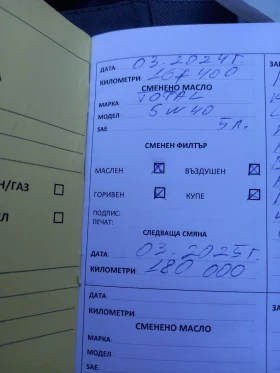 ДАТА: 03.2024г.
КИЛОМЕТРИ: 167 400
СМЕНЕНО МАСЛО
МАРКА: TOTAL
МОДЕЛ 5W40
SAE: 5 л.
СМЕНЕН ФИЛТЪР
МАСЛЕН ☒ ВЪЗДУШЕН ☒
Н/ГАЗ ☐
ГОРИВЕН ☒ КУПЕ ☒
ПОДПИС:
ПЕЧАТ:
СЛЕДВАЩА СМЯНА
ДАТА: 03.2025г.
КИЛОМЕТРИ: 180 000
ДАТА:
КИЛОМЕТРИ:
СМЕНЕНО МАСЛО
МАРКА:
МОДЕЛ
SAE: